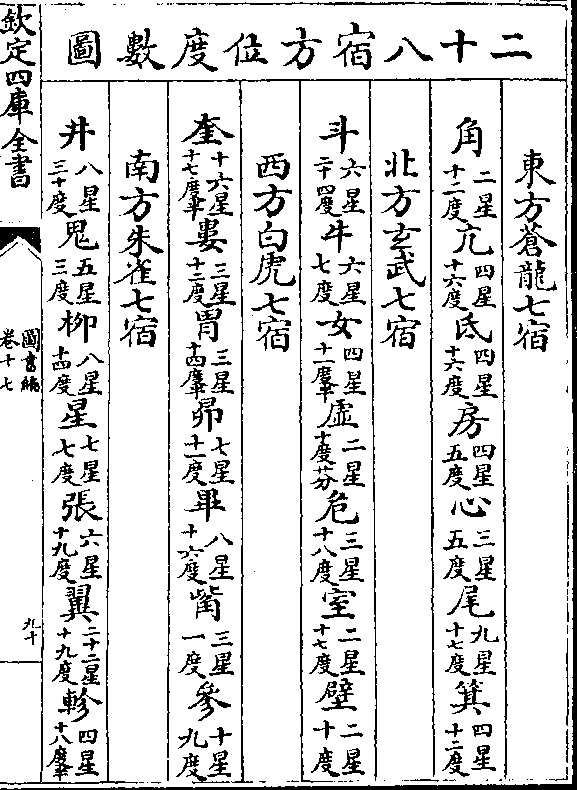 二十八宿方位度數圖
東方蒼龍七宿
角二星十二度亢四星十六度氐四星十六度房四星五度心三星五度尾九星十七度箕四星十二度
北方玄武七宿
斗六星二十四度牛六星七度女四星十一度半虛二星十度危三星十八度室二星十七度壁二星十度
西方白虎七宿
奎十六星十七度半婁三星十三度胃三星十四度半昴七星十一度畢八星十六度觜三星一度參十星九度
南方朱雀七宿
井八星三十度鬼五星三度柳八星十四度星七星七度張六星十九度翼二十二星十九度軫四星十八度半
欽定四庫全書
圖書編
卷十七
九十